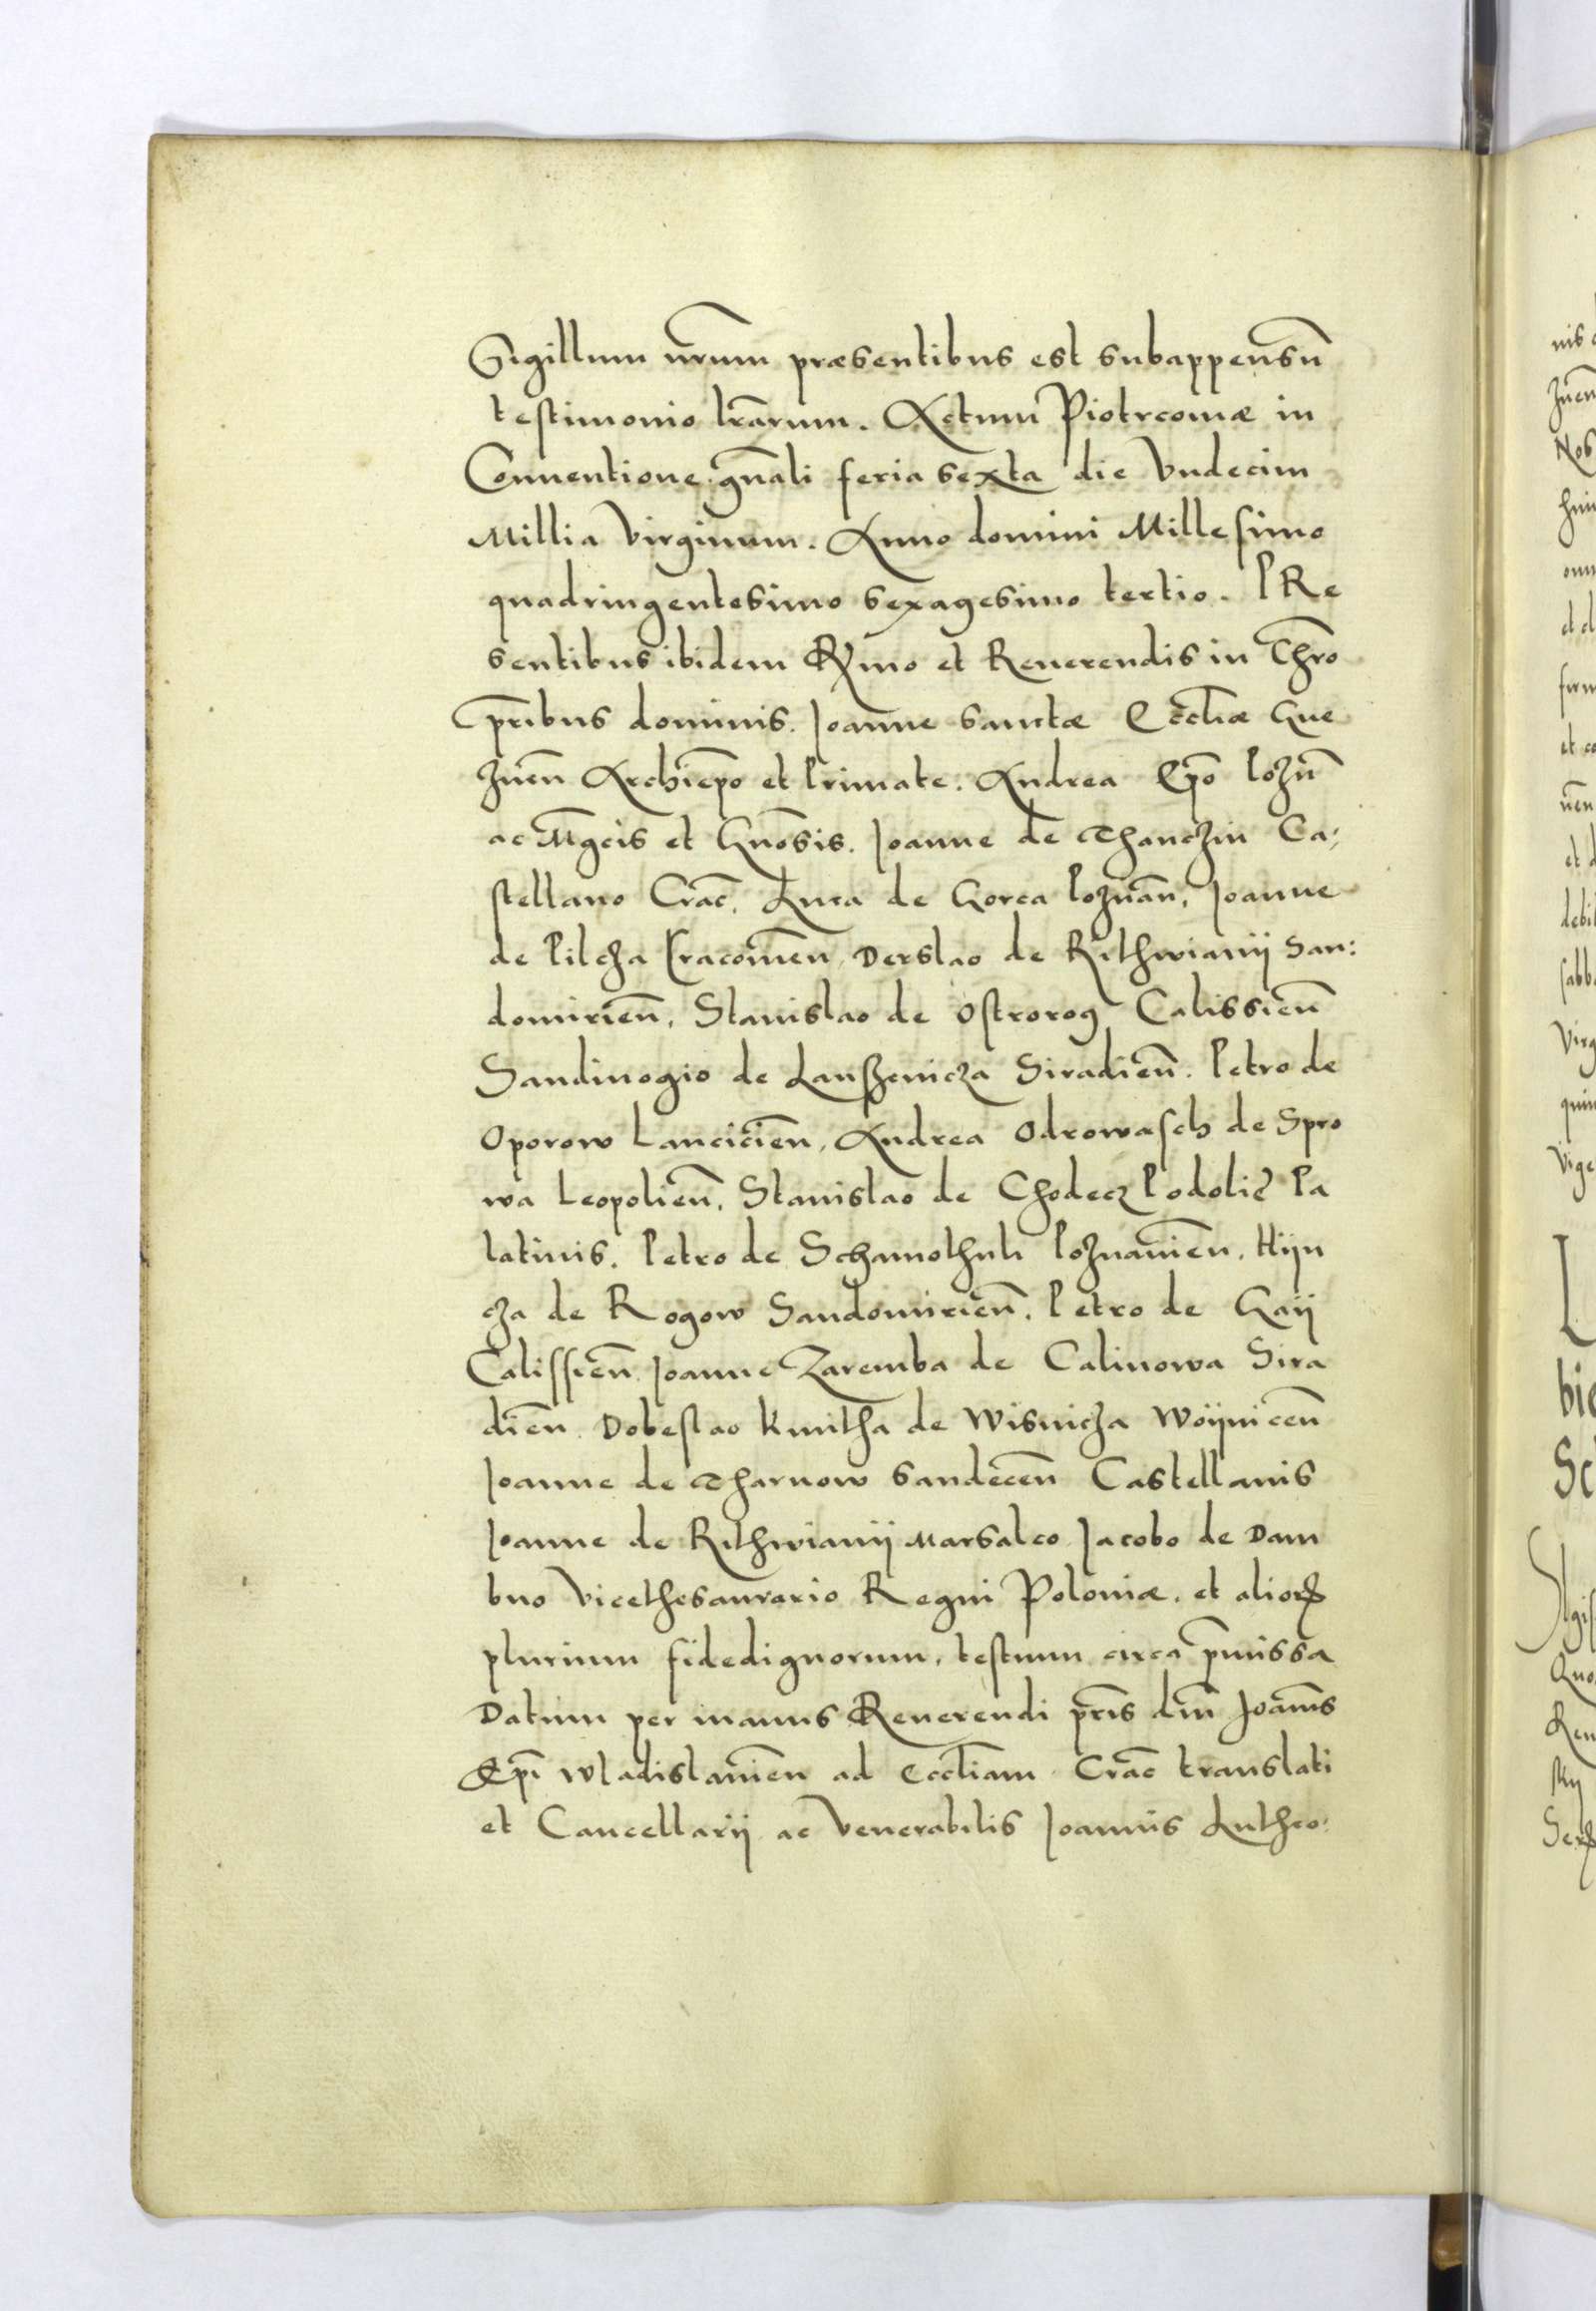 Sigillum nr̄um præsentibus est subappensū
testimonio lr̄arum. Actum Piotrcouiæ in
Conuentione gn̄ali feria sexta die Vndecim
Millia Virginum. Anno domini Millesimo
quadringentesimo sexagesimo tertio. PRe
sentibus ibidem R̄mo et Reuerendis in Chr̄o
pr̄ibus dominis. Joanne sanctæ Eccl̄iæ Gne
znen̄ Archiep̄o et Primate. Andrea Ep̄o Pozn̄
ac M̄gcis et Gn̄osis. Joanne de Thanczin Ca:
stellano Crac̄. Luca de Gorca Poznan̄, Joanne
de Pilcza Cracouien̄, Derslao de Rithwianÿ San:
domirien̄, Stanislao de Ostrorog Calissien̄
Sandiuogio de Lanßenicza Siradien̄. Petro de
Oporow Lancicien̄, Andrea Odrowasch de Spro
wa Leopolien̄, Stanislao de Chodecz Podolię Pa
latinis. Petro de Schamothuli Poznanien̄, Hÿn
cza de Rogow Sandomirien̄, Petro de Gaÿ
Calissien̄ Joanne Zaremba de Calinowa Sira
dien̄ Dobeslao Kmitha de Wisnicza Woÿnicen̄
Joanne de Tharnow Sandecen̄ Castellanis
Joanne de Rithwianÿ Marsalco Jacobo de Dam
bno Vicethesaurario Regni Poloniæ, et alioꝝ
plurium fidedignorum, testium circa p̄missa
Datum per manus Reuerendi pr̄is dn̄i Joan̄is
Ep̄i Wladislauien̄ ad Eccl̄iam Crac̄ translati
et Cancellarÿ ac Venerabilis Joannis Luthco: